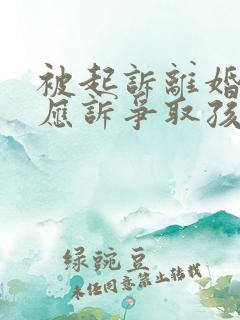 被起訴離婚
應訴爭取孩
绿豌豆
未经同意禁止转载